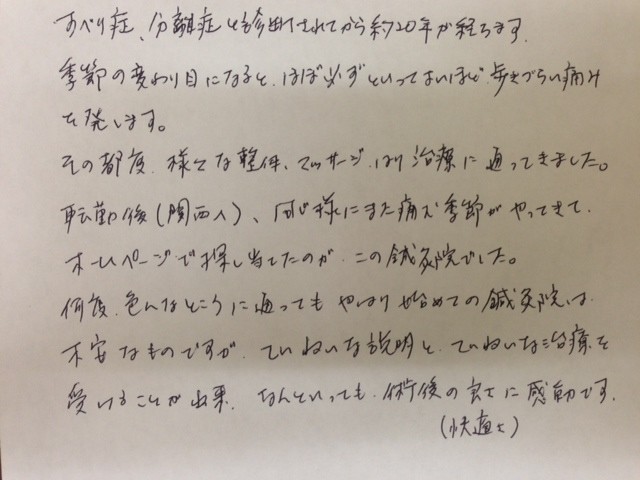 すべり症、分離症と診断されてから約20年が経ちます。
季節の変わり目になると、ほぼ必ずといってよいほど、歩きづらい痛み
を発します。
その都度、様々な整体、マッサージ、はり治療に通ってきました。
転勤後(関西へ)、同じ様にまた痛む季節がやってきて、
ホームページで探し当てたのが、この鍼灸院でした。
何度、色んなところに通っても やはり始めての鍼灸院は、
不安なものですが、ていねいな説明と、ていねいな治療を
受けることが出来、なんといっても、術後の良さに感動です。
(快適さ)